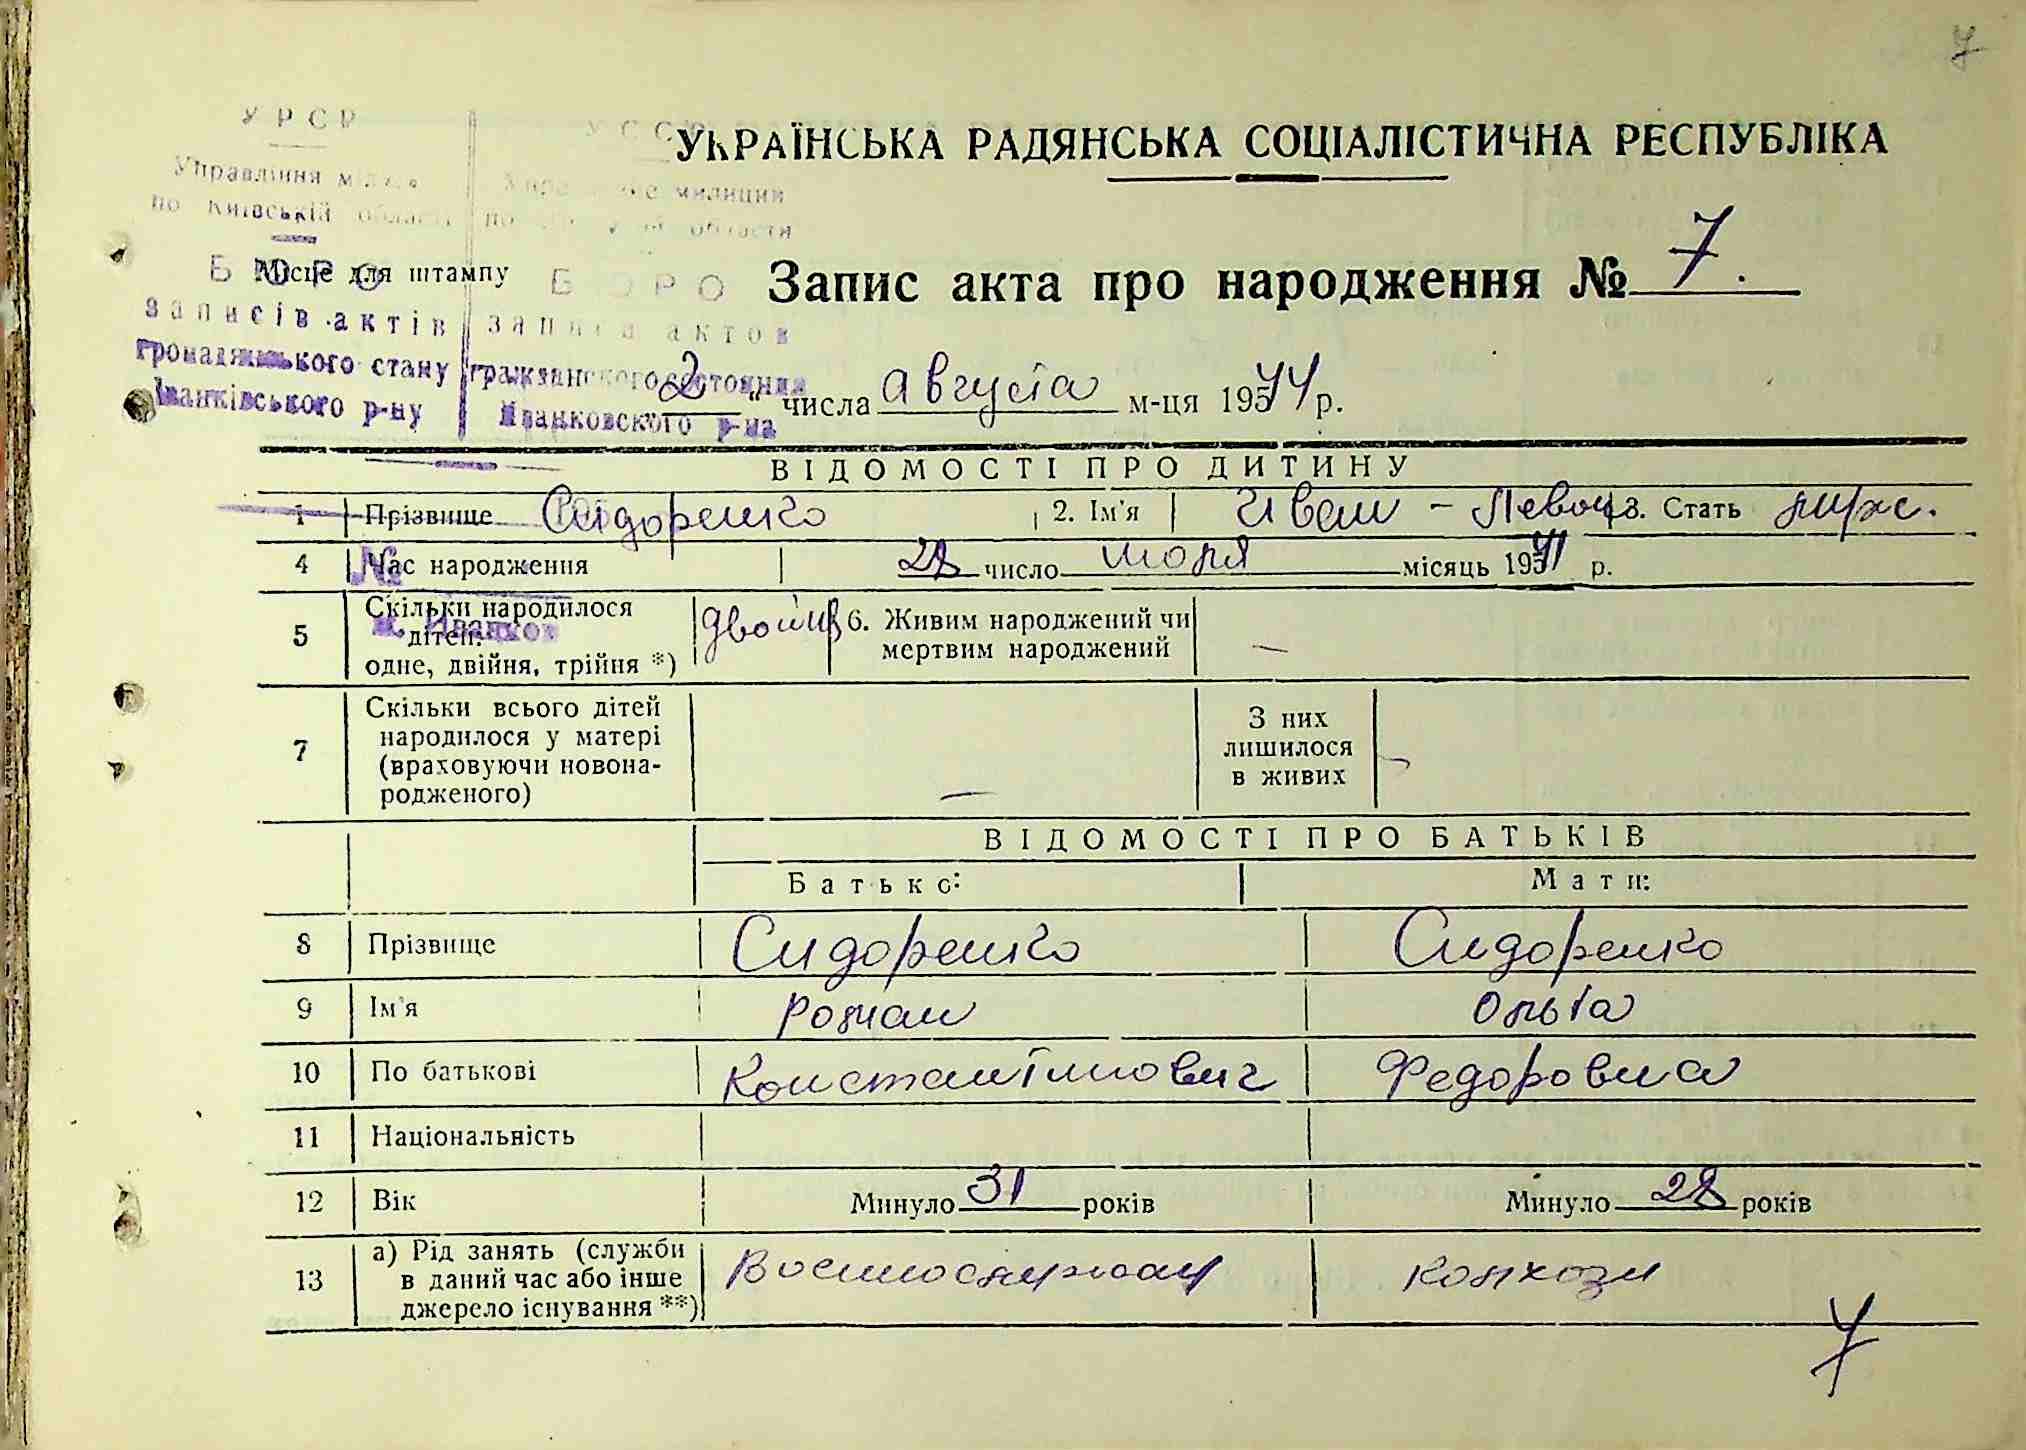 7
УРСР
УССР
УКРАЇНСЬКА РАДЯНСЬКА СОЦІАЛІСТИЧНА РЕСПУБЛІКА
Управління
милиции
по Київській області
по области
Місце для штампу
БЮРО БЮРО
Запис акта про народження № 7.
записів актів записи актов
громадянського стану гражданского состояния
Іванківського р-ну Иванковского р-на
2 " числа Августа м-ця 1944 р.
ВІДОМОСТІ ПРО ДИТИНУ
1 Прізвище Сидоренко 2. Ім'я Иван - 3. Стать муж.
4 Час народження 28 число месяць 1941 р.
5 Скільки народилося дітей:
м. Иванков
одне, двійня, трійня *) двойня 6. Живим народжений чи
мертвим народжений —
7 Скільки всього дітей
народилося у матері
(враховуючи новона-
родженого) —
З них
лишилося
в живих
ВІДОМОСТІ ПРО БАТЬКІВ
Батько: Мати:
8 Прізвище Сидоренко Сидоренко
9 Ім'я Роман Ольга
10 По батькові Константинович Федоровна
11 Національність
12 Вік Минуло 31 років Минуло 28 років
13 а) Рід занять (служби
в даний час або інше
джерело існування **)
Военнослужащ колхозн
7